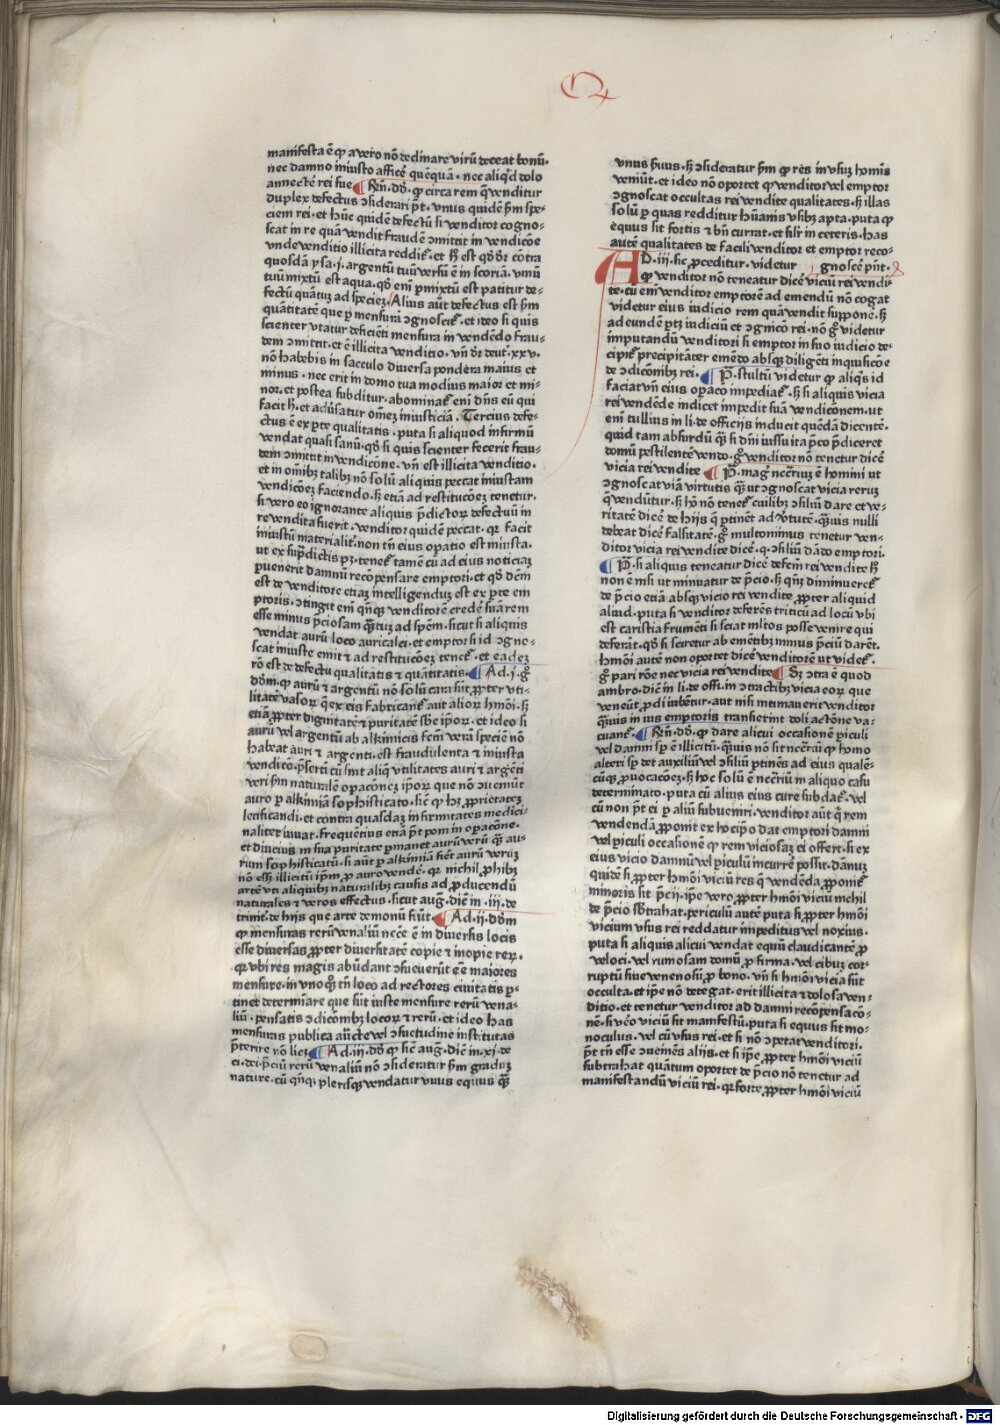 manifesta ē ꝙ a vero nō declinare virū deceat bonū·
nec damno iniusto afficē quēquā · nec aliqͥd dolo
annectē rei sue ¶ Rn̄. dō. ꝙ circa rem q̄ venditur
duplex defectus ↄsiderari pt̄. vnus quidē ẜm spe-
ciem rei. et hūc quidē defectū si venditor cogno-
scat in re quā vendit fraudē ↄmittit in vendicōe
vnde venditio illicita reddit᷑. et h̄ est qd̄ dr̄ cōtra
quosdā ysa. j. argentū tuū versū ē in scoriā. vinū
tuū mixtū est aqua. qd̄ eni ꝑmixtū est patitur de-
fectū quātuꝫ ad speciez. Alius aūt defectus est ẜm
quātitatē que ꝑ mensurā ↄgnoscit᷑. et ideo si quis
scienter vtatur deficiēti mensura in vendēdo frau-
dem ↄmittit. et ē illicita venditio. vn̄ dr̄ deut᷑. xxv.
nō habebis in sacculo diuersa pondera maius et
minus. nec erit in domo tua modius maior et mi-
nor. et postea subditur. abominat᷑ eni dn̄s eū qui
facit h̄. et aduersatur omēꝫ iniusticiā. Tercius defe-
ctus ē ex ꝑte qualitatis. puta si aliquod infirmū
vendat quasi sanū. qd̄ si quis scienter fecerit frau-
dem ↄmittit in vendicōne. vn̄ est illicita venditio.
et in oīnibꝫ talibꝫ nō solū aliquis peccat iniustam
vendicōeꝫ faciendo. sꝫ etiā ad restitucōeꝫ tenetur.
si vero eo ignorante aliquis p̄dictoꝝ defectuū in
re vendita fuerit. venditor quidē peccat. qꝛ facit
iniustū materialit᷑. non tn̄ eius oꝑatio est iniusta.
ut ex sup̄dictis pꝫ. tenet᷑ tamē cū ad eius noticiaꝫ
puenerit damnū recōpensare emptori. et qd̄ dc̄m
est de venditore etiaꝫ intelligenduꝫ est ex ꝑte em
ptoris. ↄtingit eni qn̄qꝫ venditorē credē suā rem
esse minus p̄ciosam quātuꝫ ad sp̄em. sicut si aliquis
vendat aurū loco auricalci. et emptor si id ↄgno-
scat iniuste emit et ad restitucōeꝫ tenet᷑. et eadeꝫ
rō est de defectu qualitatis et quātitatis. ¶ Ad. j. gͦ
dōm. ꝙ aurū et argentū nō solū cara sūt ꝓpter vti-
litatē vasoꝝ que ex eis fabricant᷑ aut alioꝝ hmōi. sꝫ
etiā ꝓpter dignitatē et puritatē sb̄e ip̄oꝝ. et ideo si
aurū vel argentū ab alkimicis fcm̄ verā speciē nō
habeat auri et argenti. est fraudulenta et iniusta
vendicō. p̄serti cū sint aliq̄ vtilitates auri et argēti
veri ẜm naturalē oꝑacōneꝫ ip̄oꝝ que nō ↄueniūt
auro ꝑ alkimiā sophisticato. sic̄ ꝙ hꝫ ꝓprietateꝫ
letificandi. et contra quasdaꝫ infirmitates medici-
naliter iuuat. frequētius etiā pt̄ poni in oꝑacōne.
et diucius in sua puritate ꝑmanet aurū verū qꝫ au-
rum sophisticatū. si aūt ꝑ alkimiā fiēt aurū veruꝫ
nō eēt illicitū ipm̄ ꝓ auro vendē. qꝛ nichil ꝓhibꝫ
artē vti aliquibꝫ naturalibꝫ causis ad ꝓducendū
naturales et veros effectus. sicut aug. dic̄ in. iij. de
trinit̄. de hijs que arte demonū fiūt. ¶ Ad. ij. dōm
ꝙ mensuras rerū venaliū necē ē in diuersis locis
esse diuersas ꝓpter diuersitatē copie et inopie reꝝ.
qꝛ vbi res magis abūdant ↄsueuerūt eē maiores
mensure. in vnoqͦqꝫ tn̄ loco ad rectores ciuitatis ꝑ-
tinet determīare que sūt iuste mensure rerū vena-
liū. pensatis ↄdicōibꝫ locoꝝ et rerū. et ideo has
mensuras publica auc̄te vel ↄsuetudine institutas
p̄terire nō licꝫ. ¶ Ad. iij. dō. ꝙ sic̄ aug. dic̄ in. xj. de
ci. dei. p̄ciū rerū venaliū nō ↄsideratur ẜm graduꝫ
nature. cū qn̄qꝫ plerisqꝫ vendatur vnus equus qꝫ
vnus ẜuus. sꝫ ↄsideratur ẜm ꝙ res in vsuꝫ homīs
veniūt. et ideo nō oportet ꝙ venditor vel emptor
ↄgnoscat occultas rei vendite qualitates. sꝫ illas
solū ꝑ quas redditur hūanis vsibꝫ apta. puta ꝙ
equus sit fortis et bn̄ currat. et silr̄ in ceteris. has
autē qualitates de facili venditor et emptor reco-
AD. iij. sic ꝓceditur. videtur gnoscē pn̄t.
ꝙ venditor nō teneatur dicē viciū rei vendi-
te. cū eni venditor emptorē ad emendū nō cogat
videtur eius iudicio rem quā vendit supponē. sꝫ
ad eundē ptꝫ iudiciū et ↄgnicō rei. nō gͦ videtur
imputandū venditori si emptor in suo iudicio de-
cipit᷑ precipitāter emēdo absqꝫ diligēti inquisicōe
de ↄdicōibꝫ rei. ¶ P̄. stultū videtur ꝙ aliqͥs id
faciat vn̄ eius oꝑacō impediat᷑. sꝫ si aliquis vicia
rei vendēde indicet impedit suā vendicōnem. ut
eni tullius in li. de officijs inducit quēdā dicentē.
quid tam absurdū qꝫ si dn̄i iussu ita p̄co p̄diceret
domū pestilentē vendo. gͦ venditor nō tenetur dicē
vicia rei vendite ¶ P̄. magͥ nccr̄iuꝫ ē homini ut
ↄgnoscat viā virtutis qꝫ ut ↄgnoscat vicia rerum
q̄ vendūtur. sꝫ hō nō tenet᷑ cuilibꝫ ↄsiliū dare et ve-
ritatē dicē de hijs q̄ ꝑtinēt ad v̓tutē. qꝫuis nulli
debeat dicē falsitatē. gͦ multominus tenetur ven-
ditor vicia rei vendite dicē. q. ↄsiliū dādo emptori.
¶ P̄. si aliquis teneatur dicē defcm̄ rei vendite h̄
non ē nisi ut minuatur de p̄cio. sꝫ qn̄qꝫ diminuerēt᷑
de p̄cio etiā absqꝫ vicio rei vendite ꝓpter aliquid
aliud. puta si venditor deferēs triticū ad locū vbi
est caristia frumēti si sciat ml̓tos posse venire qui
deferāt. qd̄ si sciretur ab emētibꝫ minus p̄ciū darēt.
hmōi autē non oportet dicē venditorē ut videt᷑.
gͦ pari rōe nec vicia rei vendite ¶ Sꝫ ↄtra ē quod
ambro. dic̄ in li. de offi. in ↄtractibꝫ vicia eoꝝ que
veneūt ꝓdi iubētur. aut nisi intimauerit venditor
qꝫuis in ius emptoris transierint doli actōne va-
cuant᷑. ¶ Rn̄. dō. ꝙ dare alicui occasionē piculi
vel damni sp̄ ē illicitū. qꝫuis nō sit nēccr̄iū ꝙ homo
alteri sp̄ det auxiliū vel ↄsiliū ꝑtinēs ad eius qualē-
cūqꝫ ꝓuocacōeꝫ. sꝫ hoc solū ē nēccr̄iū in aliquo casu
determinato. puta cū alius eius cure subdat᷑. vel
cū non pt̄ ei ꝑ aliū subueniri. venditor aūt q̄ rem
vendendā ꝓponit ex hͦ ip̄o dat emptori damni
vel piculi occasionē ꝙ rem viciosaꝫ ei offert. si ex
eius vicio damnū vel piculū incurrē possit. dānuꝫ
quidē si ꝓpter hmōi viciū res q̄ vendēda ꝓponit᷑
minoris sit p̄cij. ip̄e vero ꝓpter hmōi viciū nichil
de p̄cio sb̄trahat. periculū autē puta si ꝓpter hmōi
vicium vsus rei reddatur impeditus vel noxius.
puta si aliquis alicui vendat equū claudicantē ꝓ
veloci. vel ruinosam domū ꝓ firma. vel cibuꝫ cor-
ruptū siue venenosū ꝓ bono. vn̄ si hmōi vicia sint
occulta. et ip̄e nō detegat. erit illicita et dolosa ven-
ditio. et tenetur venditor ad damni recōpensacō-
nē. si vero viciū sit manifestū. puta si equus sit mo-
noculus. vel cū vsus rei. et si nō ↄpetat venditori.
pt̄ tn̄ esse ↄueniēs alijs. et si ip̄e ꝓpter hmōi viciū
subtrahat quātum oportet de p̄cio nō tenetur ad
manifestandū viciū rei. qꝛ forte ꝓpter hmōi viciū
Digitalisierung gefördert durch die Deutsche Forschungsgemeinschaft - DFG